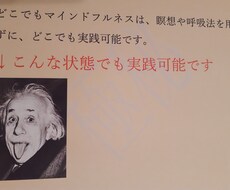 どこでもマインドフルネスは、瞑想や呼吸法を用
ずに、どこでも実践可能です。
↓こんな状態でも実践可能です